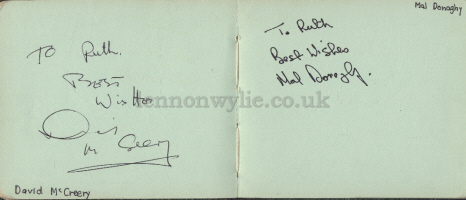 To Ruth.
BEST
Wishes
David
McCreery
David McCreery
Mal Donaghy
To Ruth
Best Wishes
Mal Donaghy.
lennonwylie.co.uk